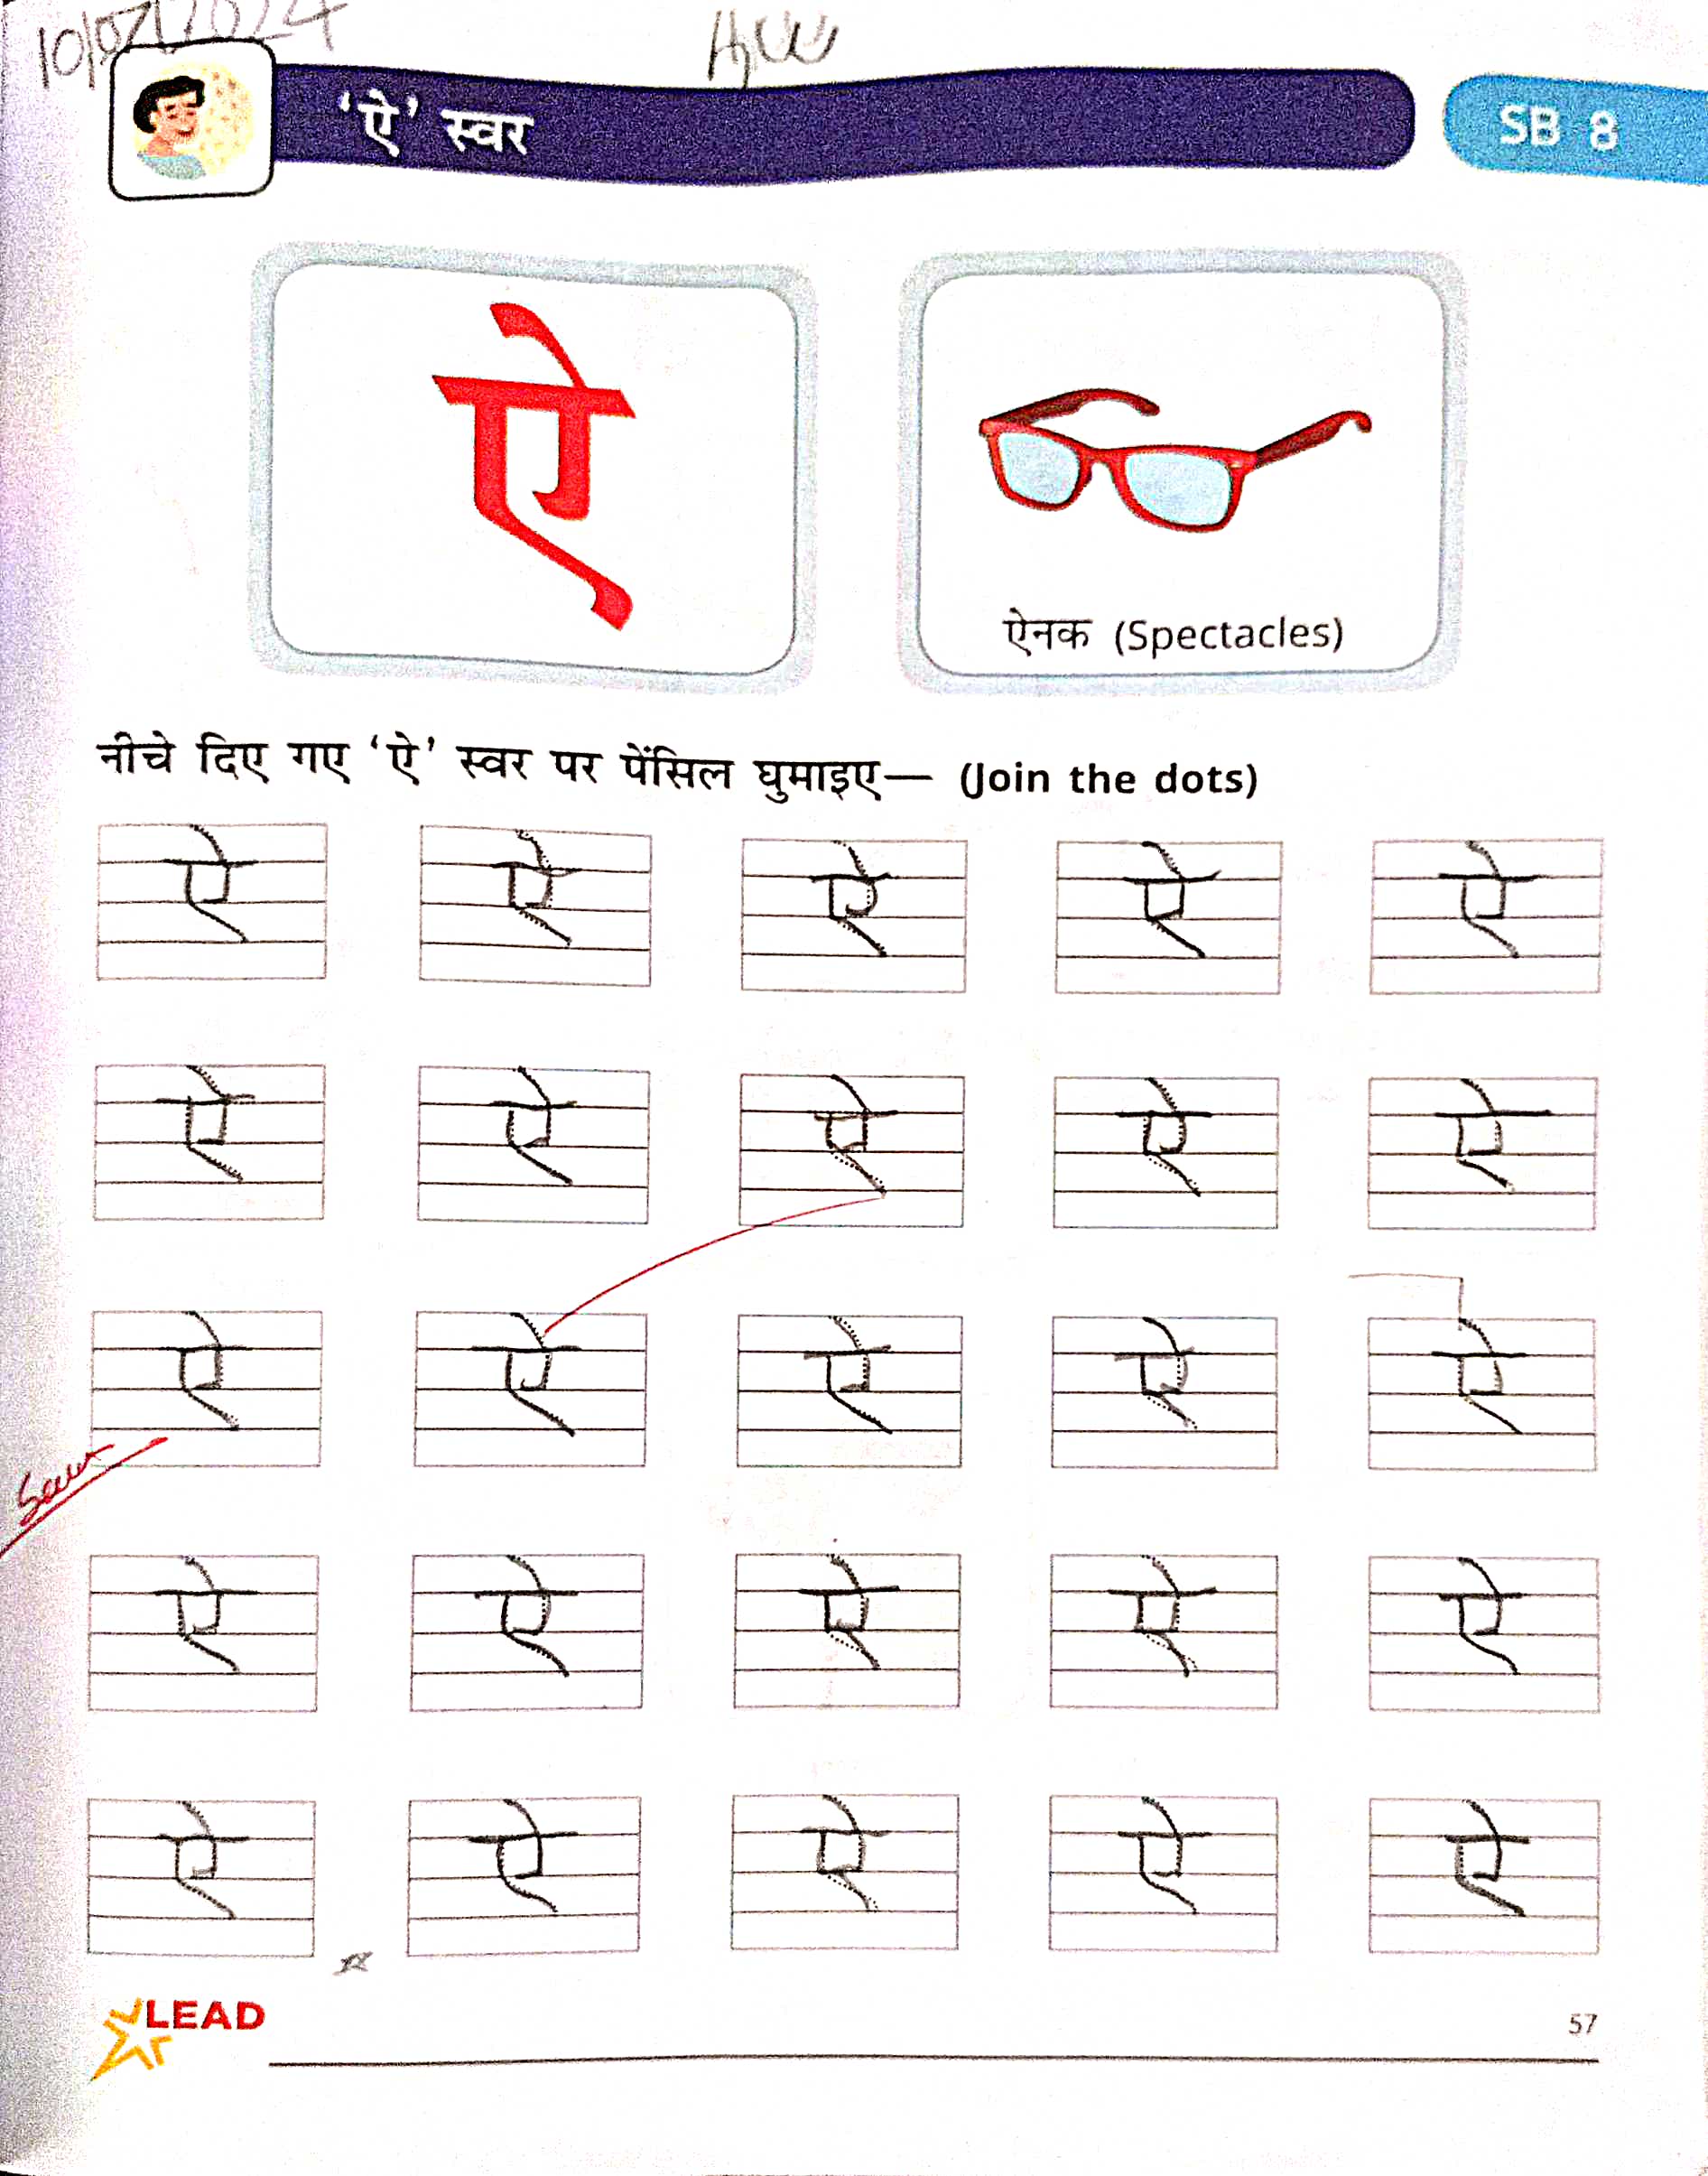 10/07/2024
H.W
‘ऐ’ स्वर
SB 8
ऐ
ऐनक (Spectacles)
नीचे दिए गए ‘ऐ’ स्वर पर पेंसिल घुमाइए— (Join the dots)
ऐ ऐ ऐ ऐ ऐ
ऐ ऐ ऐ ऐ ऐ
ऐ ऐ ऐ ऐ ऐ
Seen
ऐ ऐ ऐ ऐ ऐ
ऐ ऐ ऐ ऐ ऐ
LEAD
57